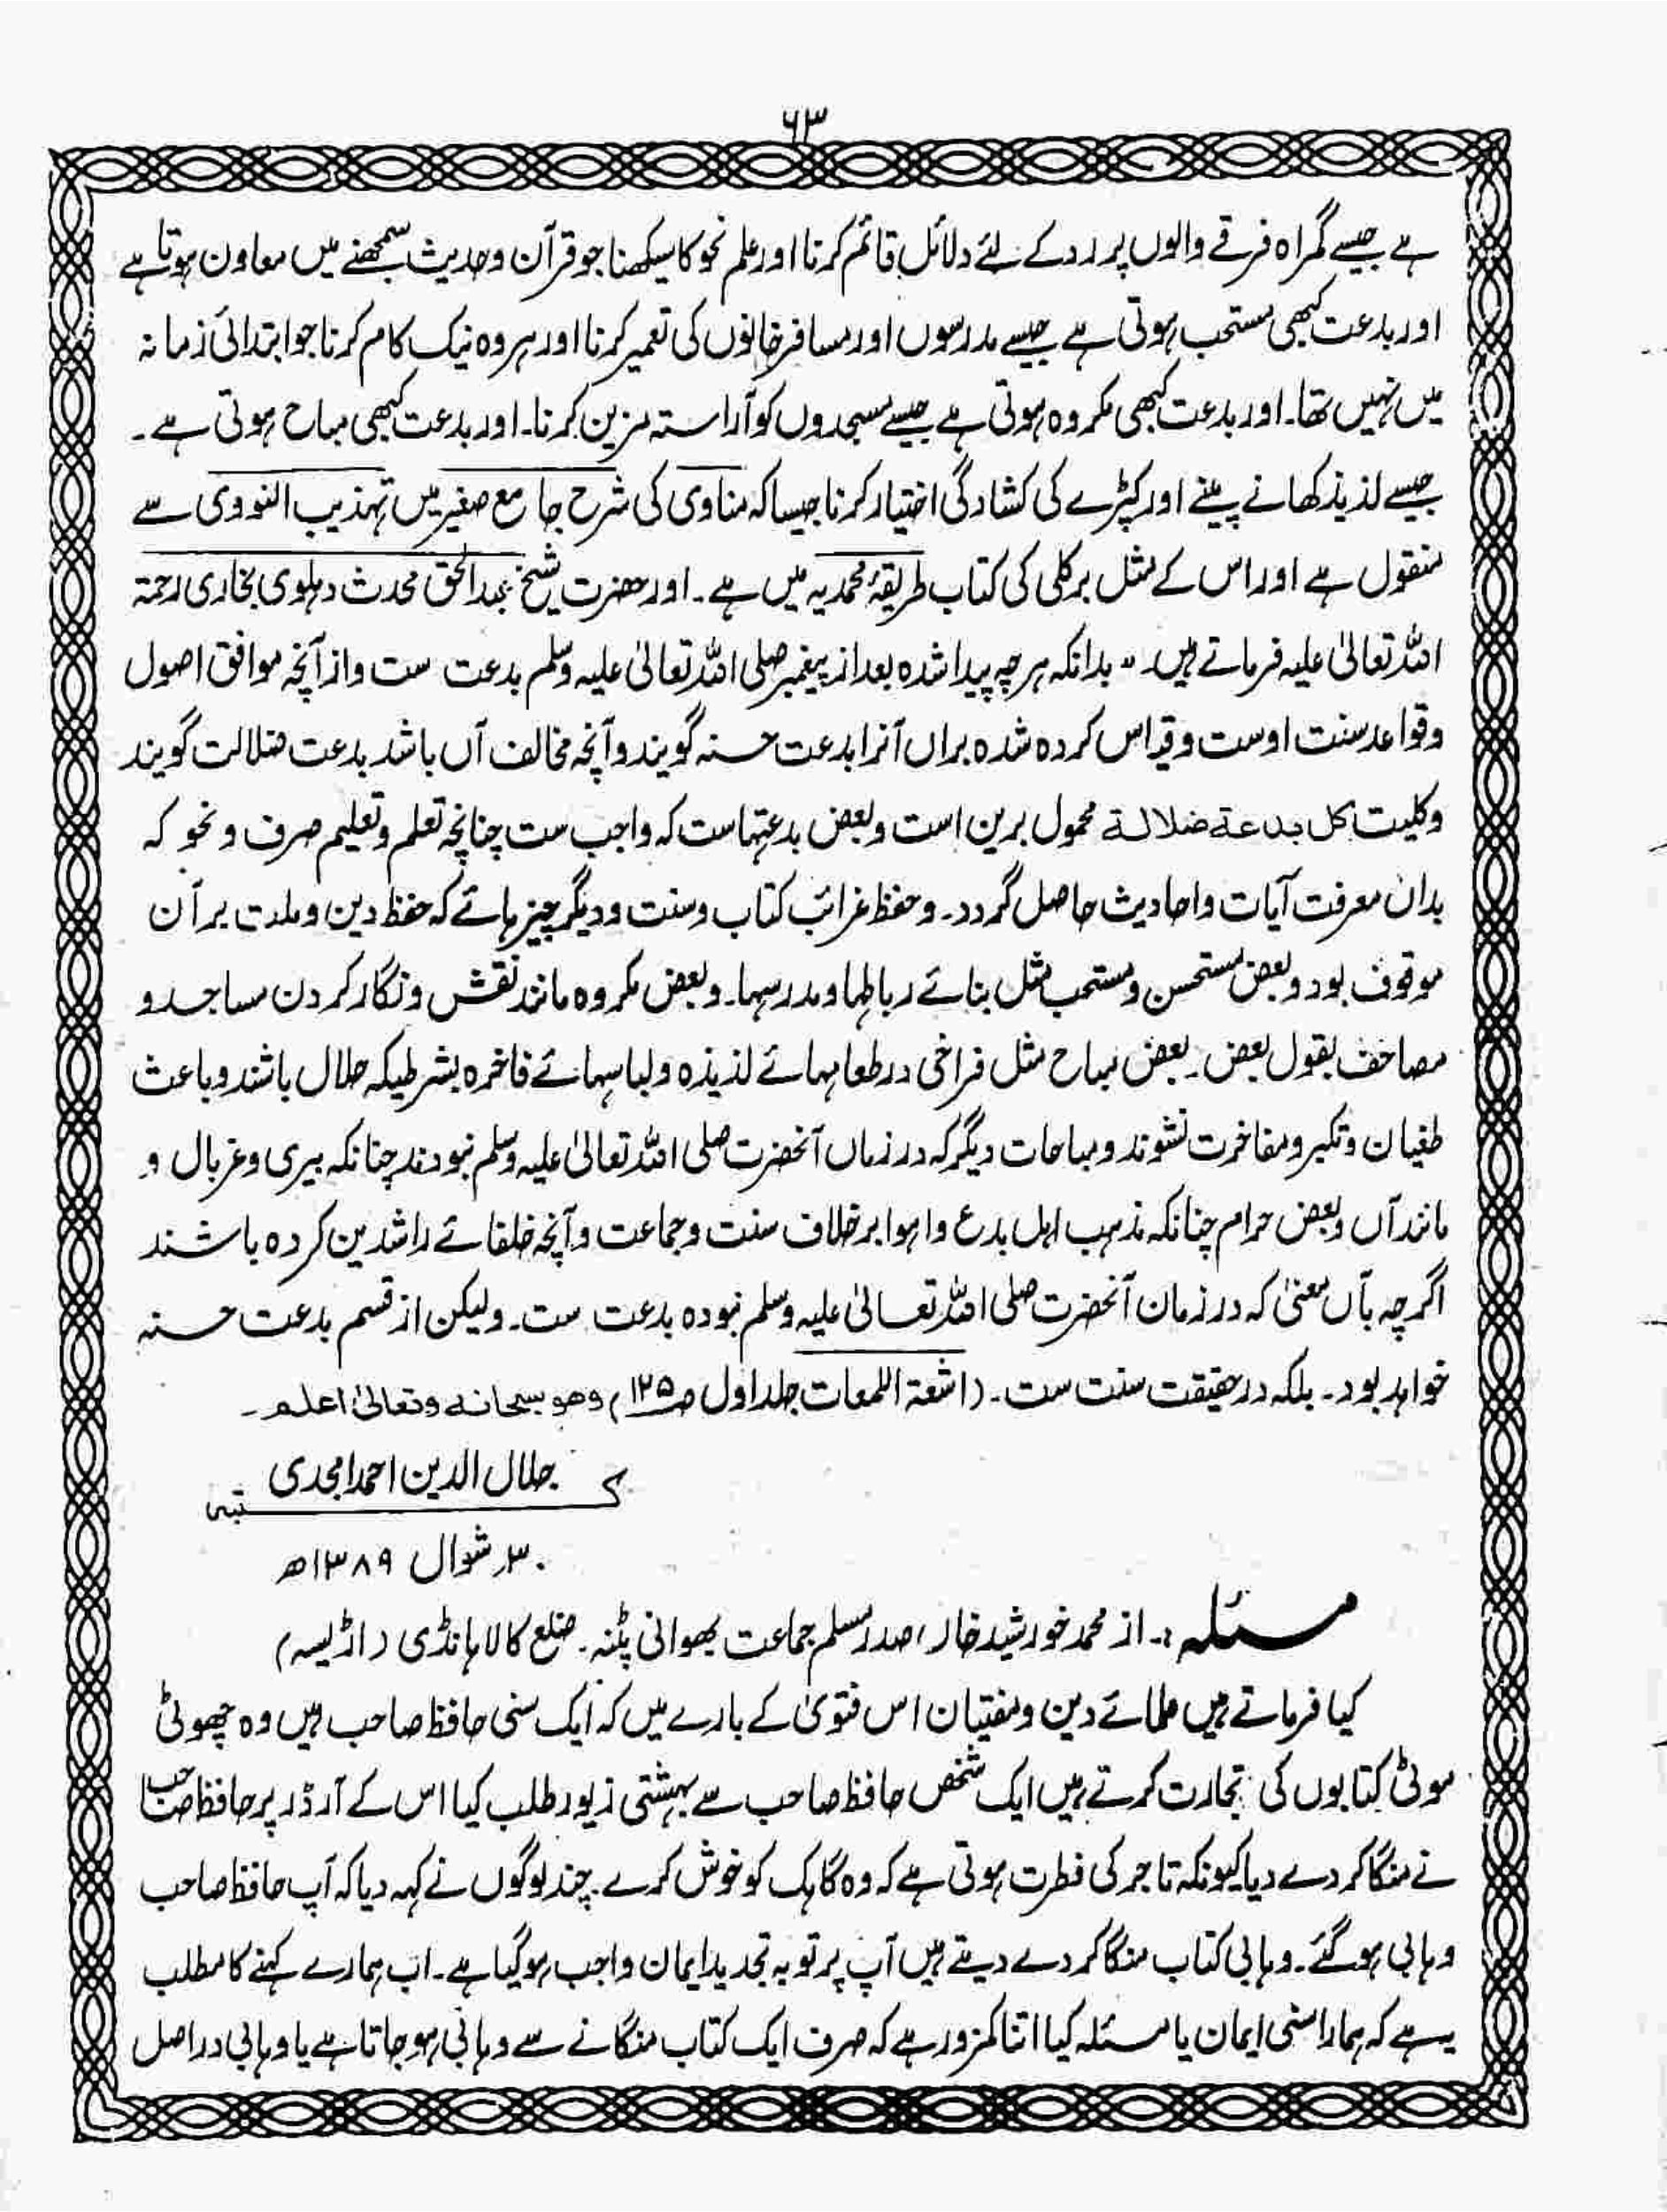 ۶۳
ہے جیسے گمراہ فرقے والوں پر رد کے لئے دلائل قائم کرنا اور علم نحو کا سیکھنا جو قرآن و حدیث سمجھنے میں معاون ہوتا ہے
اور بدعت کبھی مستحب ہوتی ہے جیسے مدرسوں اور مسافر خانوں کی تعمیر کرنا اور ہر وہ نیک کام کرنا جو ابتدائی زمانہ
میں نہیں تھا۔ اور بدعت کبھی مکروہ ہوتی ہے جیسے مسجدوں کو آراستہ مزین کرنا۔ اور بدعت کبھی مباح ہوتی ہے۔
جیسے لذیذ کھانے پینے اور کپڑے کی کشادگی اختیار کرنا جیسا کہ مناوی کی شرح جامع صغیر میں تہذیب النووی سے
منقول ہے اور اس کے مثل برکلی کی کتاب طریقۂ محمدیہ میں ہے۔ اور حضرت شیخ عبدالحق محدث دہلوی بخاری رحمۃ
اللہ تعالیٰ علیہ فرماتے ہیں۔ " بدانکہ ہر چہ پیدا شدہ بعد از پیغمبر صلی اللہ تعالیٰ علیہ وسلم بدعت ست و از آنچہ موافق اصول
و قواعد سنت اوست و قیاس کردہ شدہ براں آنرا بدعت حسنہ گویند و آنچہ مخالف آں باشد بدعت ضلالت گویند
و کلیت کل بدعة ضلالة محمول برین است و بعض بدعتہاست کہ واجب ست چنانچہ تعلم و تعلیم صرف و نحو کہ
بدان معرفت آیات و احادیث حاصل گردد۔ و حفظ غرائب کتاب و سنت و دیگر چیزہائے کہ حفظ دین و ملت برآن
موقوف بود و بعض مستحسن و مستحب مثل بنائے رباطہا و مدرسہا۔ و بعض مکروہ مانند نقش و نگار کردن مساجد و
مصاحف بقول بعض۔ بعض مباح مثل فراخی در طعامہائے لذیذہ و لباسہائے فاخرہ بشرطیکہ حلال باشند و باعث
طغیان و تکبر و مفاخرت نشوند و مباحات دیگر کہ در زماں آنحضرت صلی اللہ تعالیٰ علیہ وسلم نبودند چنانکہ بیری و غربال و
مانند آں و بعض حرام چنانکہ مذہب اہل بدع و اہوا بر خلاف سنت و جماعت و آنچہ خلفائے راشدین کردہ باشند
اگرچہ بآں معنیٰ کہ در زمان آنحضرت صلی اللہ تعالیٰ علیہ وسلم نبودہ بدعت ست۔ ولیکن از قسم بدعت حسنہ
خواہد بود۔ بلکہ در حقیقت سنت ست۔ (اشعۃ اللمعات جلد اول ص۱۲۵) وھو سبحانہ وتعالیٰ اعلم۔
کـــتبہ جلال الدین احمد امجدی
۳۰ شوال ۱۳۸۹ھ
مسئلہ:۔ از محمد خورشید خاں، صدر مسلم جماعت بھوانی پٹنہ۔ ضلع کالا ہانڈی (اڑیسہ)
کیا فرماتے ہیں علمائے دین و مفتیان اس فتویٰ کے بارے میں کہ ایک سنی حافظ صاحب ہیں وہ چھوٹی
موٹی کتابوں کی تجارت کرتے ہیں ایک شخص حافظ صاحب سے بہشتی زیور طلب کیا اس کے آرڈر پر حافظ صاحب
نے منگا کر دے دیا کیونکہ تاجر کی فطرت ہوتی ہے کہ وہ گاہک کو خوش کرے۔ چند لوگوں نے کہہ دیا کہ آپ حافظ صاحب
وہابی ہوگئے۔ وہابی کتاب منگا کر دے دیتے ہیں آپ پر توبہ تجدید ایمان واجب ہوگیا ہے۔ اب ہمارے کہنے کا مطلب
یہ ہے کہ ہمارا سنی ایمان یا مسئلہ کیا اتنا کمزور ہے کہ صرف ایک کتاب منگانے سے وہابی ہو جاتا ہے یا وہابی دراصل